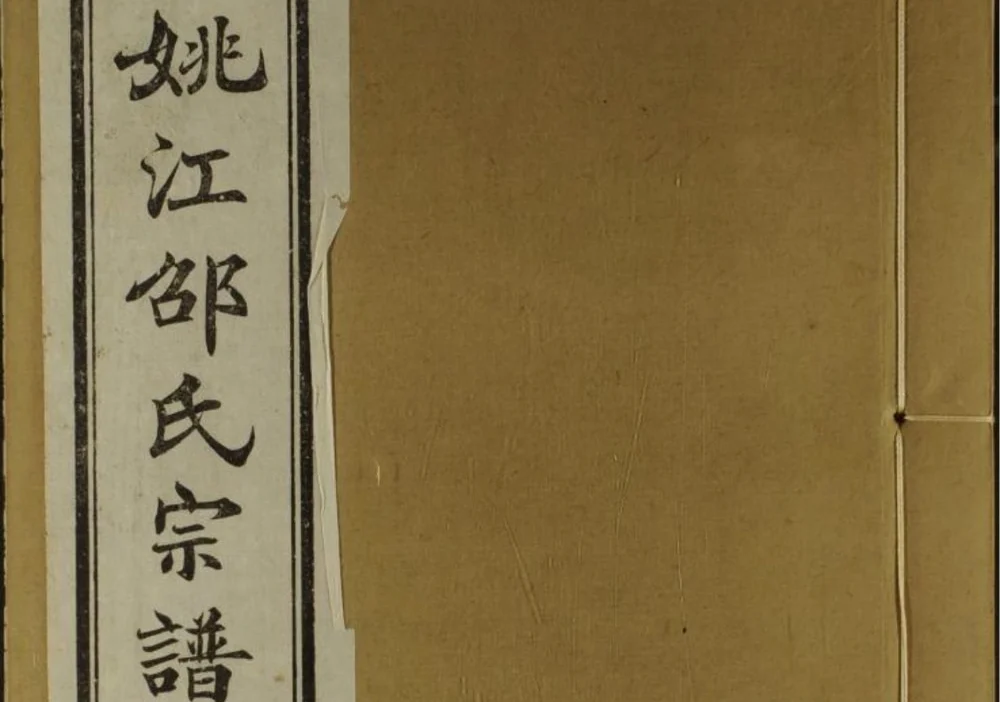 姚江邵氏宗譜